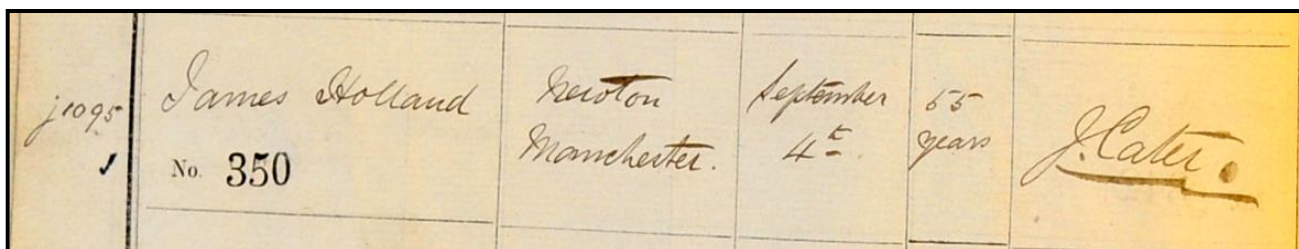 j1095
James Holland
No. 350
Newton
Manchester.
September
4th.
55
years
J. Cater.